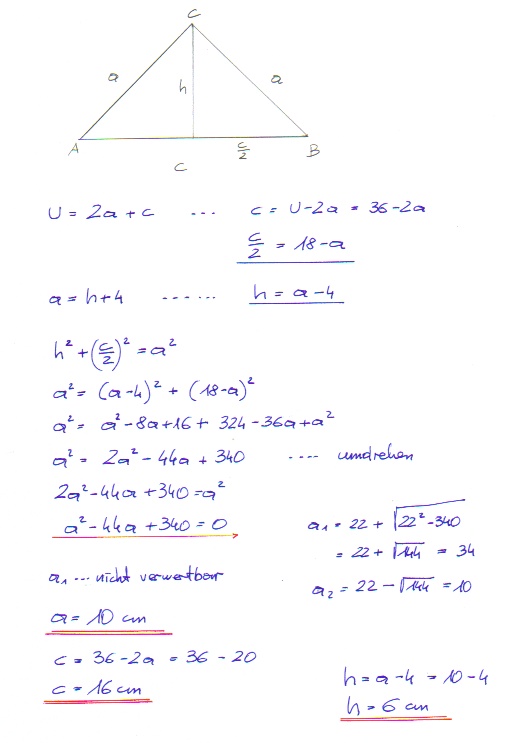 C
a a
h
A c/2 B
c
U = 2a + c ... c = U-2a = 36-2a
c/2 = 18-a
a = h+4 ...... h = a-4
h² + (c/2)² = a²
a² = (a-4)² + (18-a)²
a² = a²-8a+16 + 324-36a+a²
a² = 2a²-44a + 340 .... umdrehen
2a²-44a+340 = a²
a²-44a+340 = 0
a₁ = 22 + √22²-340
= 22 + √144 = 34
a₁ ... nicht verwertbar
a₂ = 22 - √144 = 10
a = 10 cm
c = 36-2a = 36-20
c = 16 cm
h = a-4 = 10-4
h = 6 cm